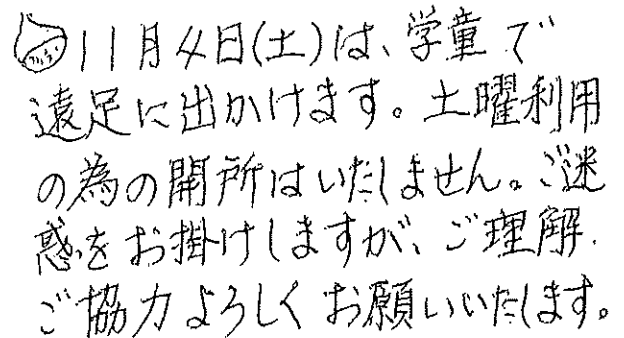 11月4日(土)は、学童で
遠足に出かけます。土曜利用
の為の開所はいたしません。ご迷
惑をお掛けしますが、ご理解、
ご協力よろしくお願いいたします。